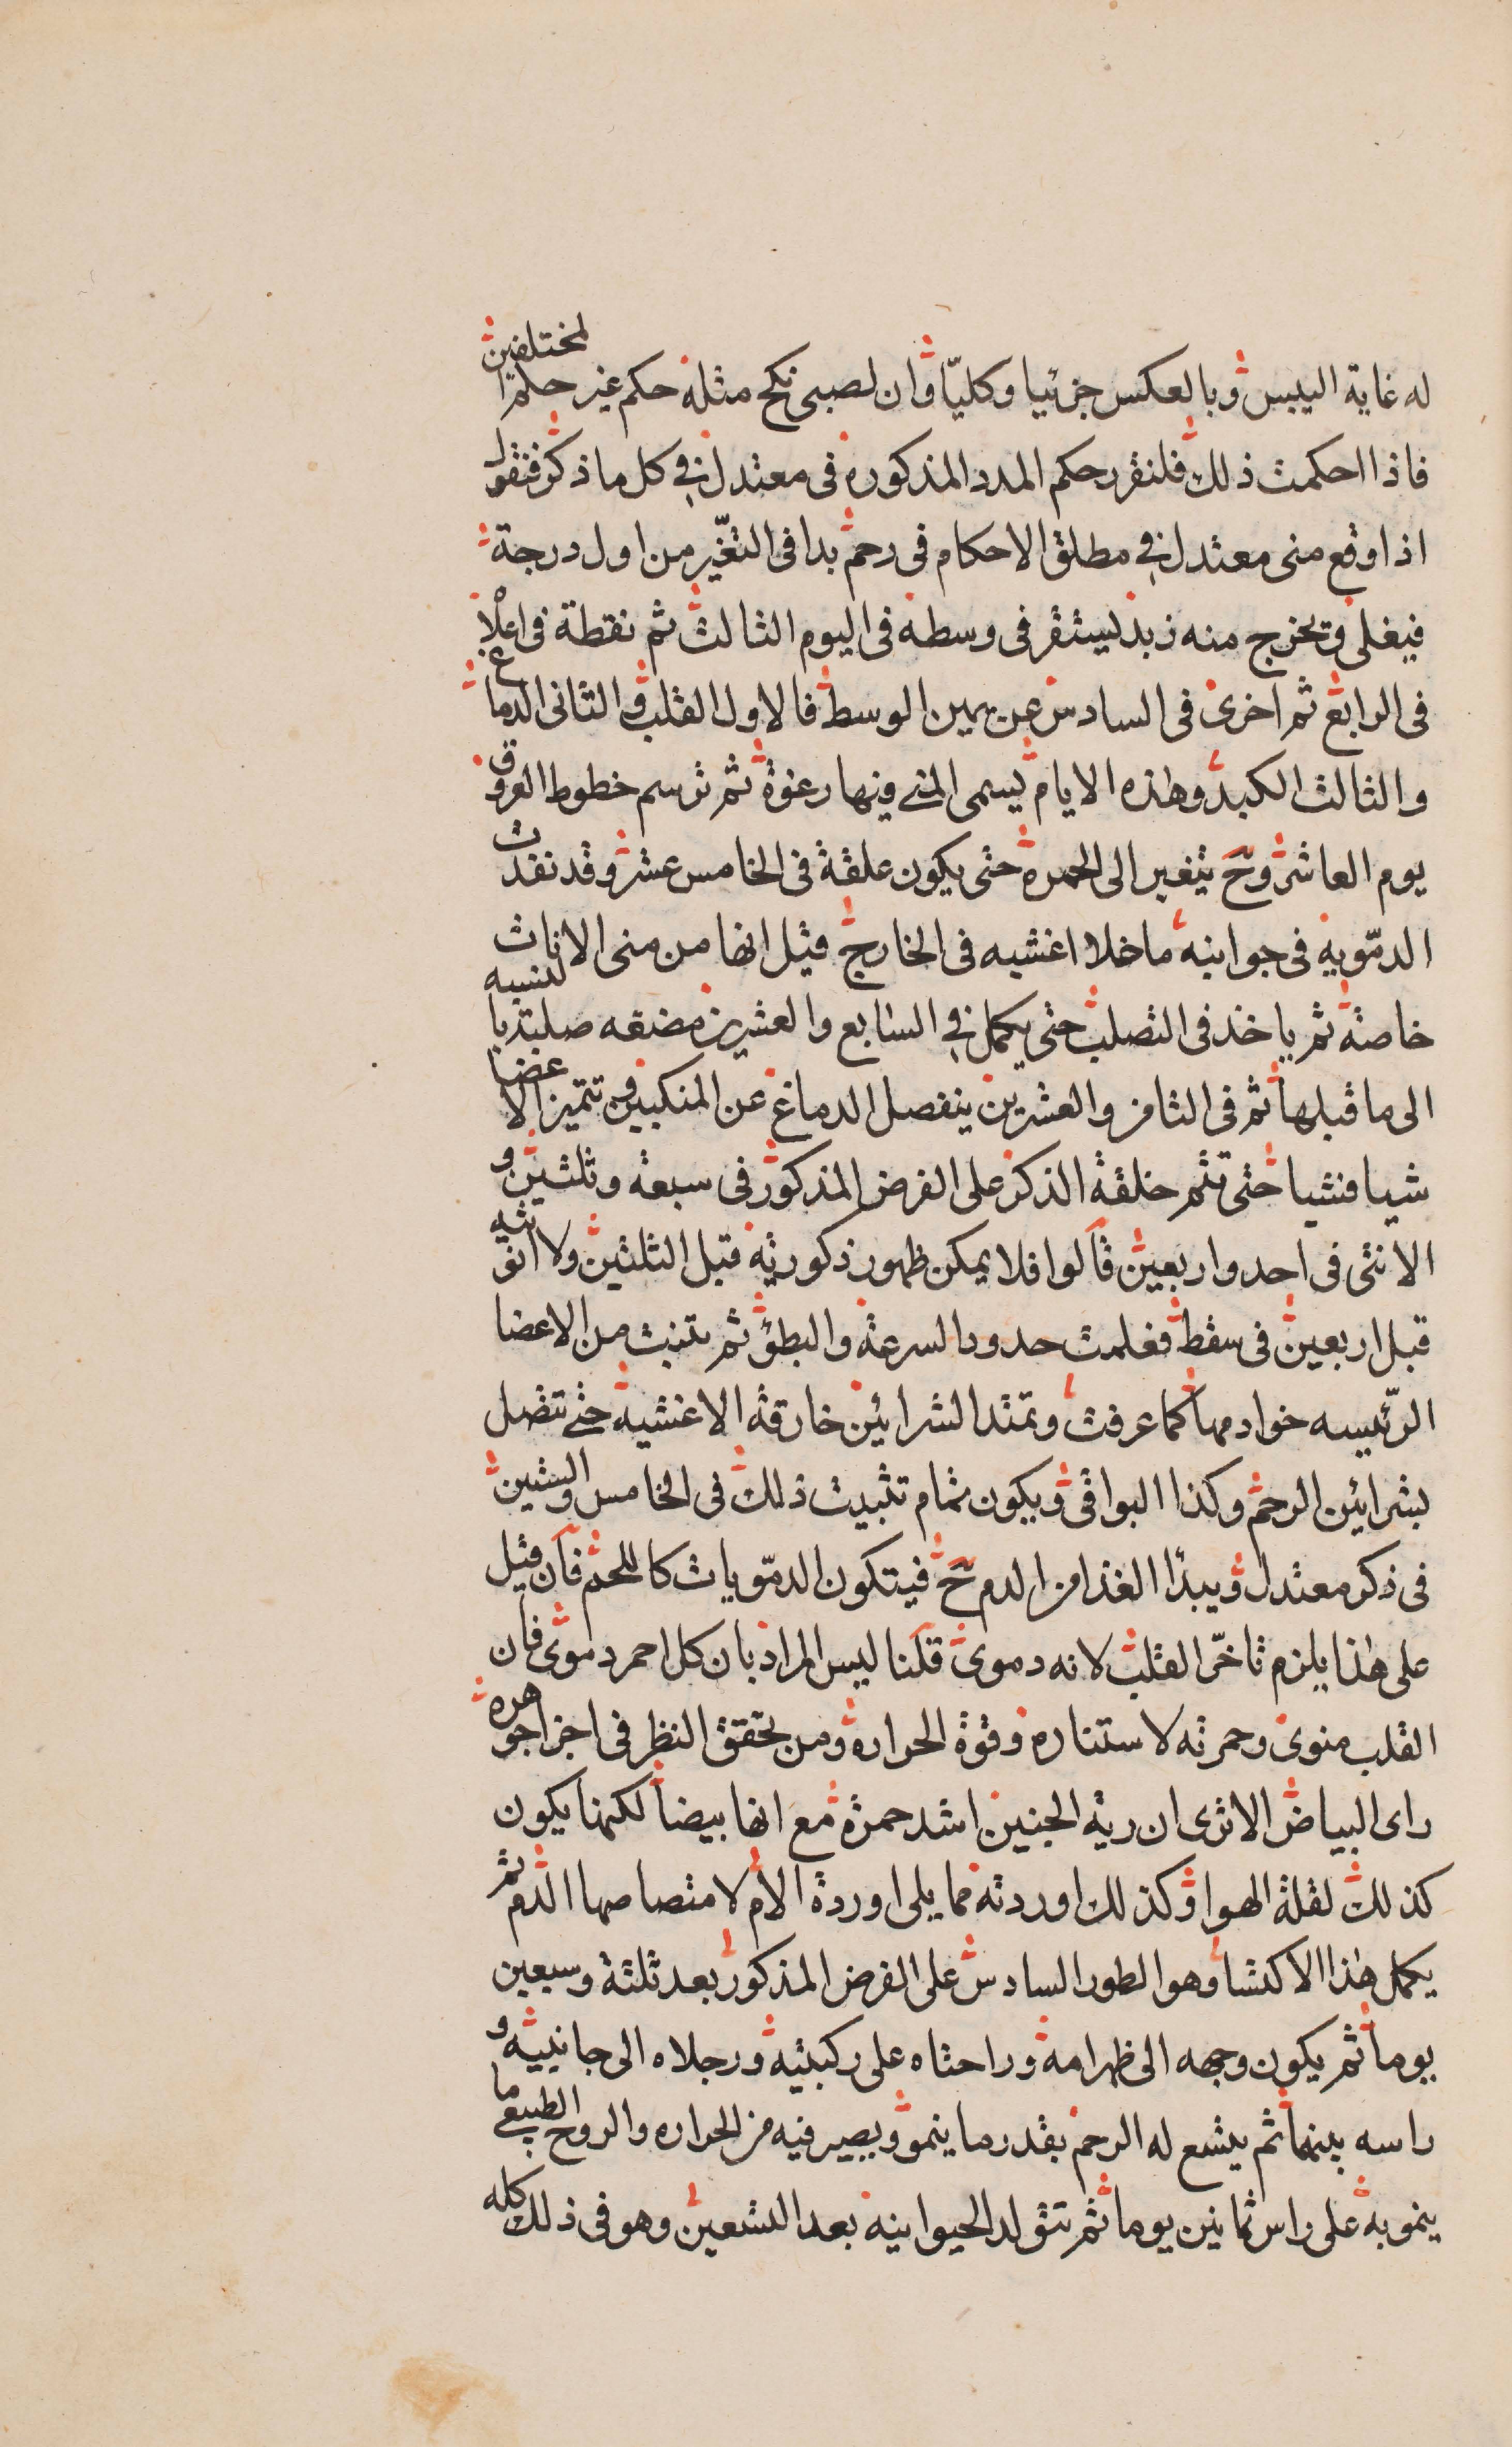 له غاية اليبس وبالعكس جزئيا وكليّا وان لصبى نكح مثله حكم غير حكم المختلفين
فاذا احكمت ذلك فلنقرر حكم المدد المذكورة فى معتدل فى كل ما ذكر فنقول
اذا وقع منى معتدل فى مطلق الاحكام فى رحم بدا فى التغيّر من اول درجة
فيغلى ويخرج منه زبد ليستقر فى وسطه فى اليوم الثالث ثم نقطة فى اعلاه
فى الرابع ثم اخرى فى السادس عن يمين الوسط فالاول القلب والثانى الدماغ
والثالث الكبد وهذه الايام يسمى المنى فيها رغوة ثم ترسم خطوط العروق
يوم العاشر وح يتغير الى الحمرة حتى يكون علقة فى الخامس عشر وقد نفذت
الدمّوية فى جوانبه ما خلا اغشيه فى الخارج قيل انها من منى الاناث
خاصة ثم ياخذ فى التصلب حتى يكمل فى السابع والعشرين مضغه صلبة بالنسبه
الى ما قبلها ثم فى الثامن والعشرين ينفصل الدماغ عن المنكبين وتتميز الاعضا
شيا فشيا حتى تتم خلقة الذكر على الفرض المذكور فى سبعة وثلثين و
الانثى فى احد واربعين قالوا فلا يمكن ظهور ذكوريته قبل الثلثين ولا انوثيه
قبل اربعين فى سقط فعلمت حدود السرعة والبطؤ ثم تنبث من الاعضا
الرّئيسه خوادمها كما عرفت وتمتد الشرائين خارقة الاغشية حتى تتصل
بشرائين الرحم وكذا البواقى ويكون تمام تثبيت ذلك فى الخامس والستين
فى ذكر معتدل ويبدأ الغذا من الدم ح فيتكون الدمّويات كاللحم فان قيل
على هذا يلزم تاخّر القلب لانه دموى قلنا ليس المراد بان كل احمر دموى فان
القلب منوى وحمرته لاستناره وقوة الحرارة ومن تحقق النظر فى اجزا جوهره
راى البياض الا ترى ان رية الجنين اشد حمرة مع انها بيضا لكنها يكون
كذلك لقلة الهوا وكذلك اوردته مما يلى اوردة الام لامتصاصها الدم ثم
يكمل هذا الاكتسا وهو الطور السادس على الفرض المذكور بعد ثلثة وسبعين
يوما ثم يكون وجهه الى ظهر امه وراحتاه على ركبتيه ورجلاه الى جانبيه و
راسه بينها ثم يتسع له الرحم بقدر ما ينمو ويصير فيه من الحراره والروح الطبيعى ما
ينمو به على راس ثمانين يوما ثم تتولد الحيوانيه بعد التسعين وهو فى ذلك كله